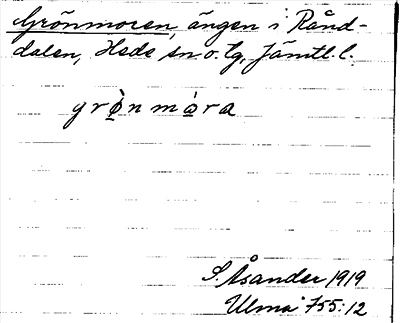 Grönmoren, ängen i Rånd-
dalen, Hede sn. o. tg, Jämtl. l.
grø̀n mo̱̊̀ra
S. Åsander 1919
Ulma 755:12